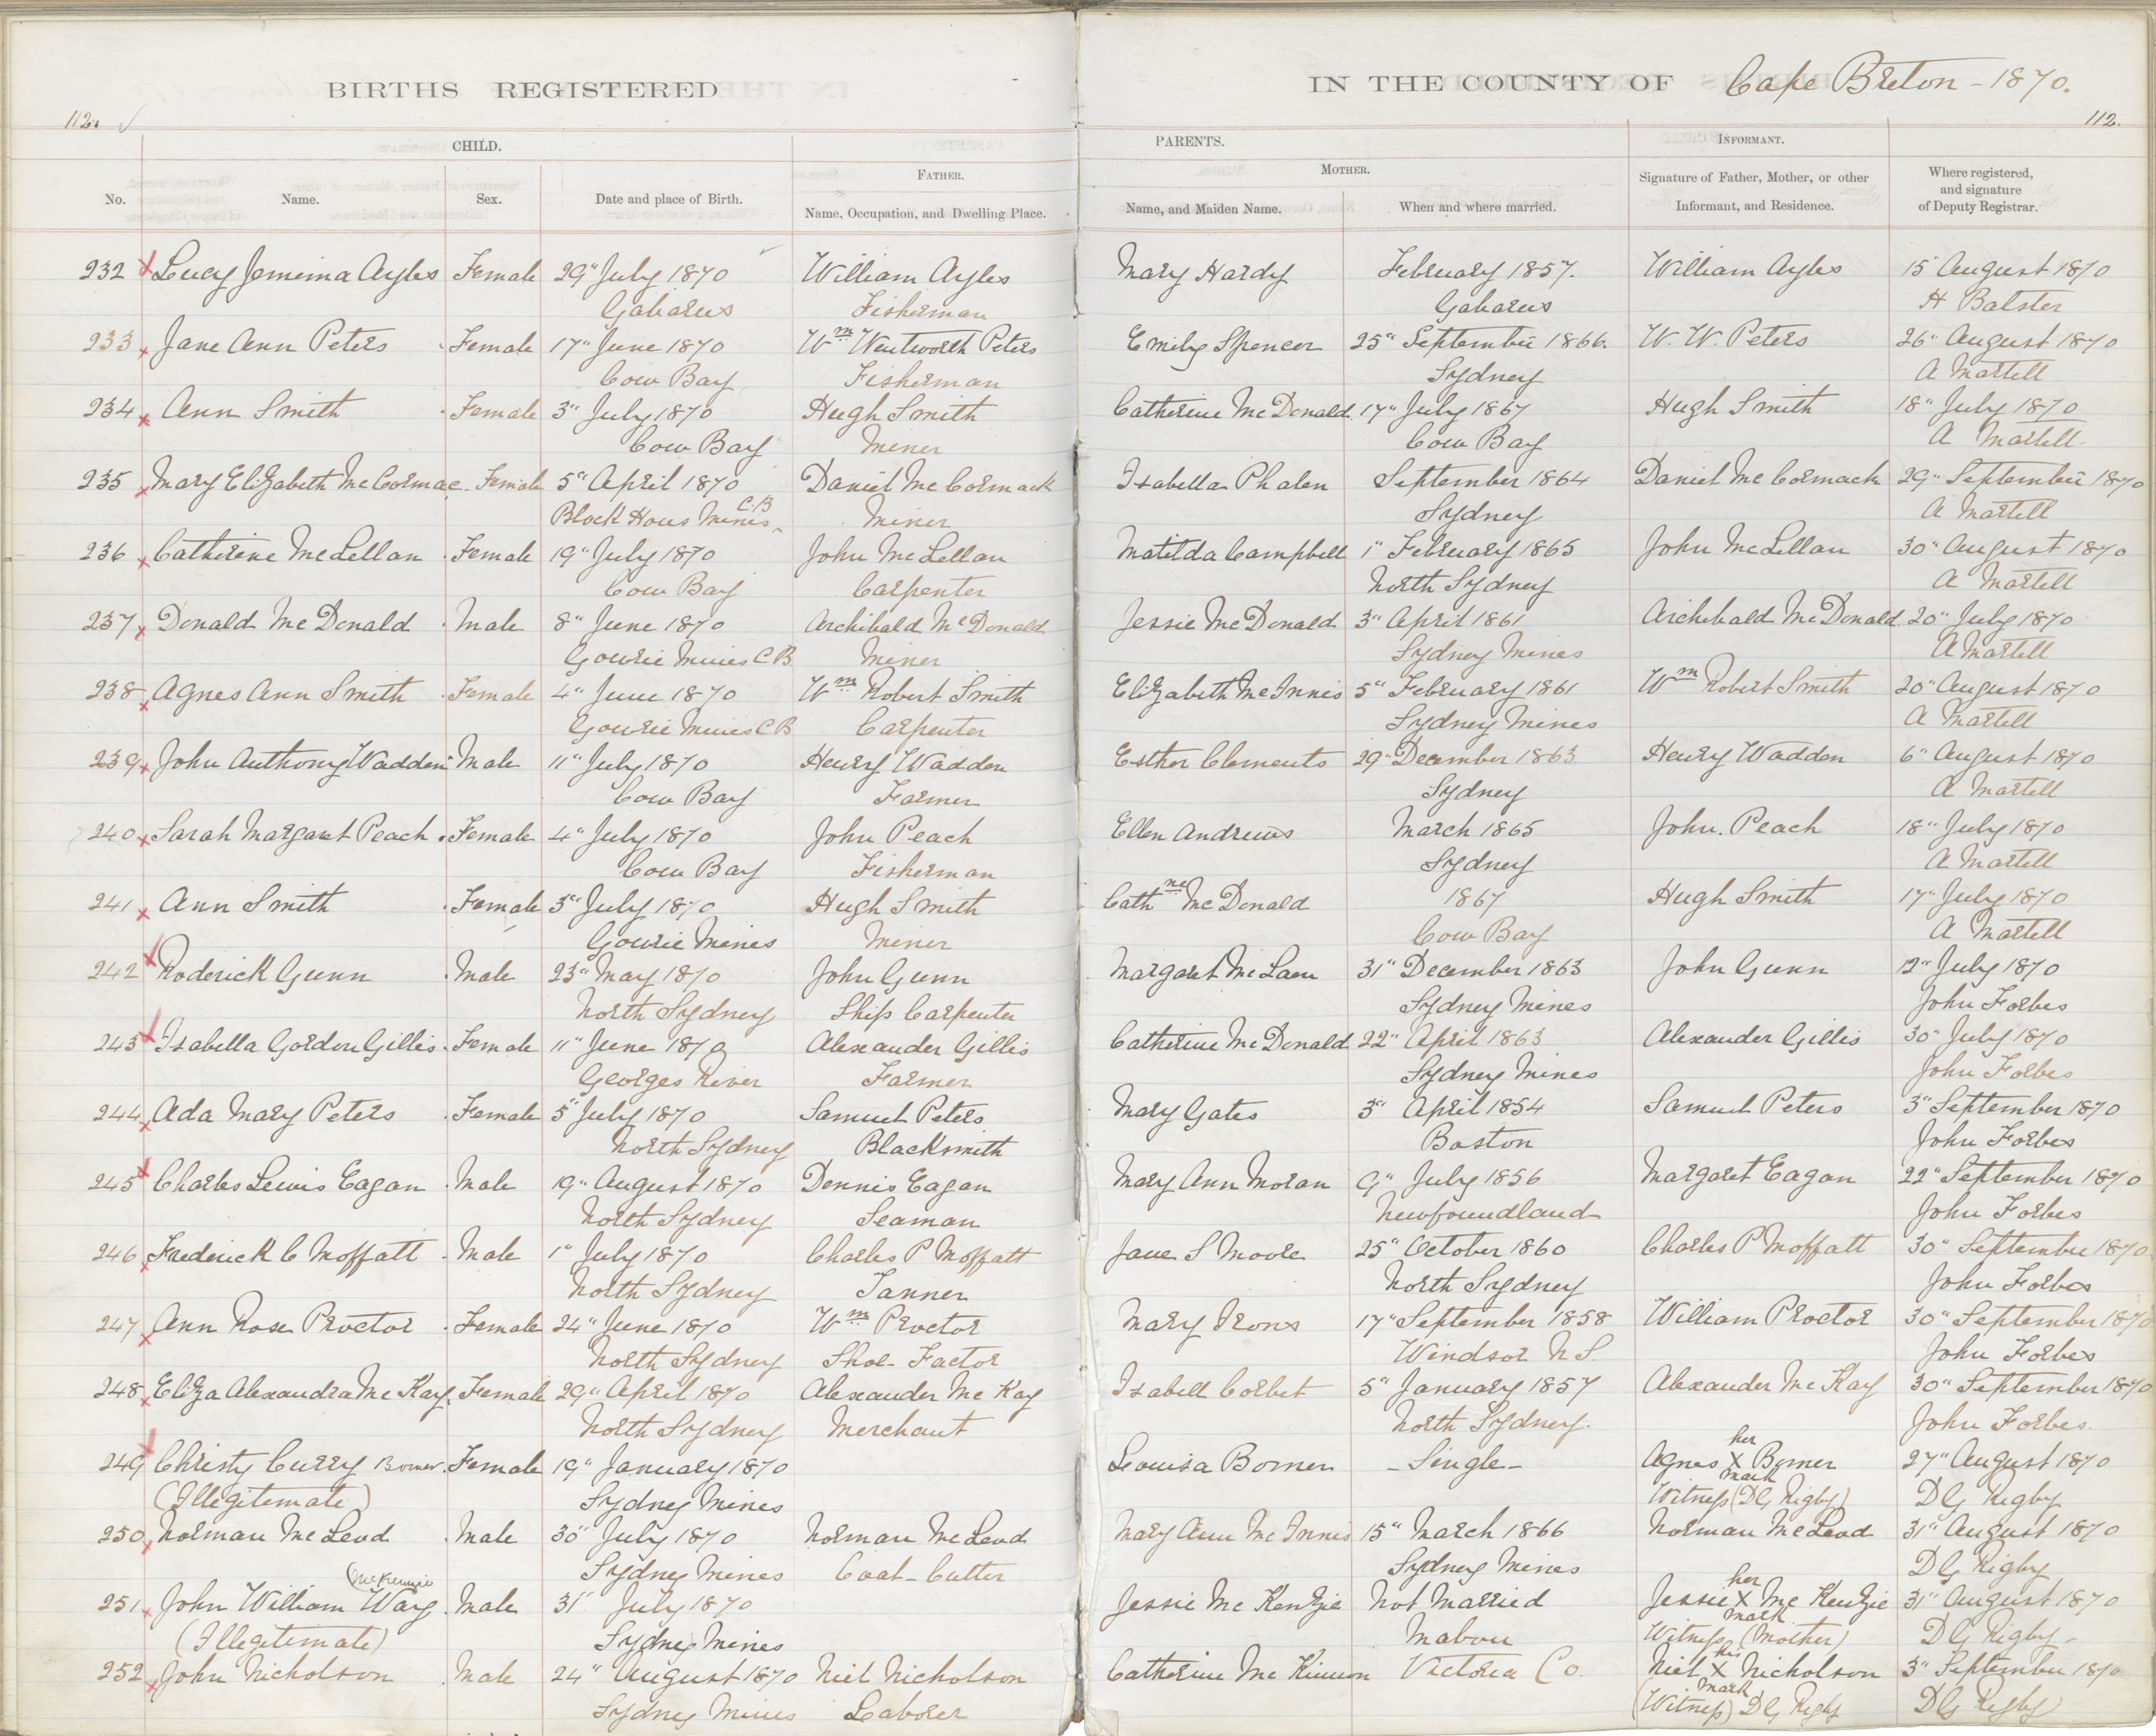 BIRTHS REGISTERED IN THE COUNTY OF Cape Breton - 1870.
112. 112.
CHILD. PARENTS. INFORMANT.
FATHER. MOTHER.
No. Name. Sex. Date and place of Birth. Name, Occupation, and Dwelling Place. Name, and Maiden Name. When and where married. Signature of Father, Mother, or other Informant, and Residence. Where registered, and signature of Deputy Registrar.
232 Lucy Jemima Ayles Female 29" July 1870 William Ayles Mary Hardy February 1857. William Ayles 15 August 1870
Gabarus Fisherman Gabarus H Balster
233 Jane Ann Peters Female 17" June 1870 Wm Wentworth Peters Emily Spencer 25" September 1866. W. W. Peters 26" August 1870
Cow Bay Fisherman Sydney A Martell
234 Ann Smith Female 3" July 1870 Hugh Smith Catherine McDonald 17" July 1867 Hugh Smith 18" July 1870
Cow Bay Miner Cow Bay A Martell
235 Mary Elizabeth McCormac Female 5" April 1870 Daniel McCormack Isabella Phalen September 1864 Daniel McCormack 29" September 1870
Block Hous Mines C.B Miner Sydney A Martell
236 Catherine McLellan Female 19" July 1870 John McLellan Matilda Campbell 1" February 1865 John McLellan 30" August 1870
Cow Bay Carpenter North Sydney A Martell
237 Donald McDonald Male 8" June 1870 Archibald McDonald Jessie McDonald 3" April 1861 Archibald McDonald 20" July 1870
Gowrie Mines C B Miner Sydney Mines A Martell
238 Agnes Ann Smith Female 4" June 1870 Wm Robert Smith Elizabeth McInnis 5" February 1861 Wm Robert Smith 20" August 1870
Gowrie Mines C B Carpenter Sydney Mines A Martell
239 John Anthony Wadden Male 11" July 1870 Henry Wadden Esther Clements 29" December 1863 Henry Wadden 6" August 1870
Cow Bay Farmer Sydney A Martell
240 Sarah Margaret Peach Female 4" July 1870 John Peach Ellen Andrews March 1865 John Peach 18" July 1870
Cow Bay Fisherman Sydney A Martell
241 Ann Smith Female 3" July 1870 Hugh Smith Cathne McDonald 1867 Hugh Smith 17" July 1870
Gowrie Mines Miner Cow Bay A Martell
242 Roderick Gunn Male 23" May 1870 John Gunn Margaret McLean 31" December 1863 John Gunn 12" July 1870
North Sydney Ship Carpenter Sydney Mines John Forbes
243 Isabella Gordon Gillis Female 11" June 1870 Alexander Gillis Catherine McDonald 22" April 1863 Alexander Gillis 30" July 1870
Georges River Farmer Sydney Mines John Forbes
244 Ada Mary Peters Female 5" July 1870 Samuel Peters Mary Gates 3" April 1854 Samuel Peters 3" September 1870
North Sydney Blacksmith Boston John Forbes
245 Charles Lewis Eagan Male 19" August 1870 Dennis Eagan Mary Ann Moran 9" July 1856 Margaret Eagan 22" September 1870
North Sydney Seaman Newfoundland John Forbes
246 Frederick C Moffatt Male 1" July 1870 Charles P Moffatt Jane S Moore 25" October 1860 Charles P Moffatt 30" September 1870
North Sydney Tanner North Sydney John Forbes
247 Ann Rose Proctor Female 24" June 1870 Wm Proctor Mary Irons 17" September 1858 William Proctor 30" September 1870
North Sydney Shoe-Factor Windsor N S. John Forbes
248 Eliza Alexandra McKay Female 29" April 1870 Alexander McKay Isabell Corbet 5" January 1857 Alexander McKay 30" September 1870
North Sydney Merchant North Sydney. John Forbes.
249 Christy Curry Borner Female 19" January 1870 Louisa Borner - Single - Agnes her X mark Borner 27" August 1870
(Illegitemate) Sydney Mines Witness (DG Rigby) DG Rigby
250 Norman McLeod Male 30" July 1870 Norman McLeod Mary Ann McInnis 15" March 1866 Norman McLeod 31" August 1870
Sydney Mines Coal-Cutter Sydney Mines DG Rigby
(McKennzie
251 John William Wary Male 31" July 1870 Jessie McKenzie Not Married Jessie her X mark McKenzie 31" August 1870
(Illegitemate) Sydney Mines Mabou Witness (Mother) DG Rigby
252 John Nicholson Male 24" August 1870 Niel Nicholson Catherine McKinnon Victoria Co. Niel his X mark Nicholson 3" September 1870
Sydney Mines Laborer (Witness) DG Rigby DG Rigby